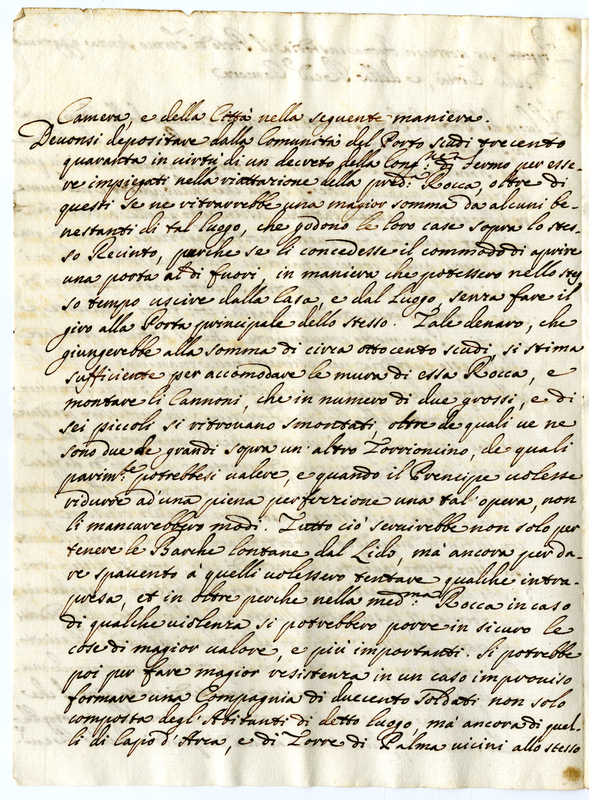 Camera, e della Città nella seguente maniera.
Devonsi depositare dalla Comunità del Porto scudi trecento
quaranta in virtù di un decreto della Cong.ne di Fermo per esse-
re impiegati nella riattazione della pred.a Rocca, oltre di
questi se ne ritrarrebbe una magior somma da alcuni be-
nestanti di tal luogo, che godono le loro case sopra lo stes-
so Recinto, perche se li concedesse il commodo di aprire
una porta al di fuori, in maniera che potessero nello stes
so tempo uscire dalla Casa, e dal Luogo, senza fare il
giro alla Porta principale dello stesso. Tale denaro, che
giungerebbe alla somma di circa ottocento scudi, si stima
sufficiente per accomodare le mura di essa Rocca, e
montare li Cannoni, che in numero di due grossi, e di
sei piccoli si ritrovano smontati, oltre de quali ve ne
sono due de grandi sopra un' altro Torrioncino, de quali
parim.te potrebbesi valere, e quando il Prencipe volesse
ridurre ad' una piena perfezzione una tal' opera, non
li mancarebbero modi. Tutto ciò servirebbe non solo per
tenere le Barche lontane dal Lido, mà ancora per da-
re spavento à quelli volessero tentare qualche intra-
presa, et in oltre perche nella med.ma Rocca in caso
di qualche violenza si potrebbero porre in sicuro le
cose di magior valore, e più importanti. Si potrebbe
poi per fare magior resistenza in un caso improviso
formare una Compagnia di duecento Soldati non solo
composta degl' Abitanti di detto luogo, mà ancora di quel-
li di Capo d' Arca, e di Torre di Palma vicini allo stesso